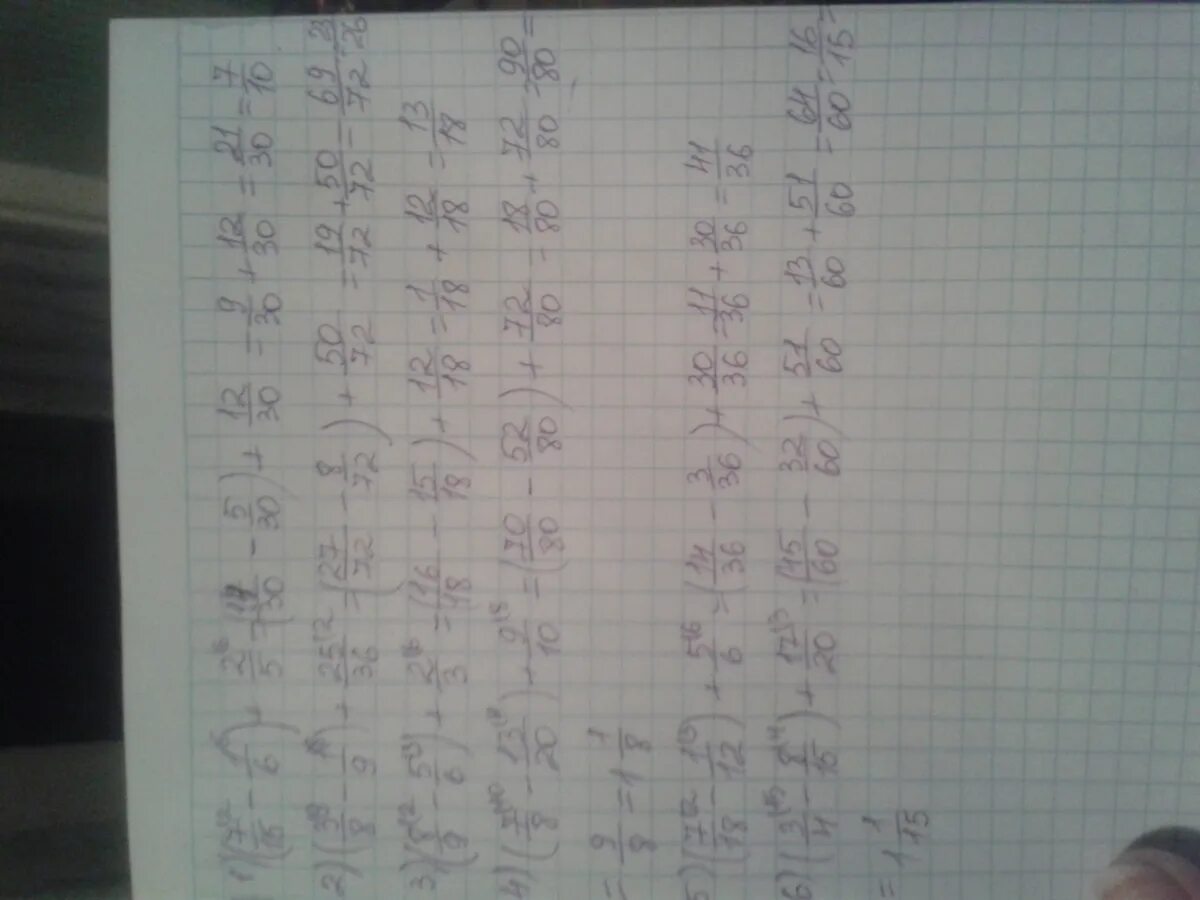 1) (7/15 - 1/6) + 2/5 = (14/30 - 5/30) + 12/30 = 9/30 + 12/30 = 21/30 = 7/10
2) (3/8 - 1/9) + 25/36 = (27/72 - 8/72) + 50/72 = 19/72 + 50/72 = 69/72
3) (8/9 - 5/6) + 2/3 = (16/18 - 15/18) + 12/18 = 1/18 + 12/18 = 13/18
4) (7/8 - 13/20) + 9/10 = (70/80 - 52/80) + 72/80 - 18/80 + 72/80 = 90/80 =
= 9/8 = 1 1/8
5) (7/18 - 1/12) + 5/6 = (14/36 - 3/36) + 30/36 = 11/36 + 30/36 = 41/36
6) (3/4 - 8/15) + 17/20 = (45/60 - 32/60) + 51/60 = 13/60 + 51/60 = 64/60 = 16/15 =
= 1 1/15